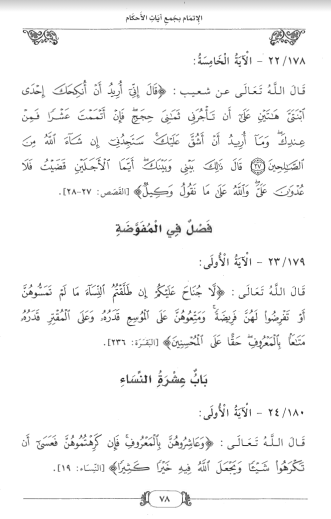 الإتمام بجمع آيات الأحكام
٢٢/١٧٨ - الآيَةُ الْخَامِسَةُ:
قَالَ اللَّـهُ تَعَـالَـى عن شعيب: ﴿قَالَ إِنِّىٓ أُرِيدُ أَنْ أُنكِحَكَ إِحْدَى
ٱبْنَتَىَّ هَـٰتَيْنِ عَلَىٰٓ أَن تَأْجُرَنِى ثَمَـٰنِىَ حِجَجٍۖ فَإِنْ أَتْمَمْتَ عَشْرًا فَمِنْ
عِندِكَۖ وَمَآ أُرِيدُ أَنْ أَشُقَّ عَلَيْكَۚ سَتَجِدُنِىٓ إِن شَآءَ ٱللَّهُ مِنَ
ٱلصَّـٰلِحِينَ ٢٧ قَالَ ذَٰلِكَ بَيْنِى وَبَيْنَكَۖ أَيَّمَا ٱلْأَجَلَيْنِ قَضَيْتُ فَلَا
عُدْوَٰنَ عَلَىَّۖ وَٱللَّهُ عَلَىٰ مَا نَقُولُ وَكِيلٌ﴾ [القَصَص: ٢٧-٢٨].
فَصْلٌ فِي الْمُفَوَّضَةِ
٢٣/١٧٩ - الآيَةُ الْأُولَى:
قَالَ اللَّـهُ تَعَـالَـى: ﴿لَّا جُنَاحَ عَلَيْكُمْ إِن طَلَّقْتُمُ ٱلنِّسَآءَ مَا لَمْ تَمَسُّوهُنَّ
أَوْ تَفْرِضُوا۟ لَهُنَّ فَرِيضَةًۚ وَمَتِّعُوهُنَّ عَلَى ٱلْمُوسِعِ قَدَرُهُۥ وَعَلَى ٱلْمُقْتِرِ قَدَرُهُۥ
مَتَـٰعًۢا بِٱلْمَعْرُوفِۖ حَقًّا عَلَى ٱلْمُحْسِنِينَ﴾ [البَقَرَة: ٢٣٦].
بَابُ عِشْرَةِ النِّسَاءِ
٢٤/١٨٠ - الآيَةُ الْأُولَى:
قَالَ اللَّـهُ تَعَـالَـى: ﴿وَعَاشِرُوهُنَّ بِٱلْمَعْرُوفِۚ فَإِن كَرِهْتُمُوهُنَّ فَعَسَىٰٓ أَن
تَكْرَهُوا۟ شَيْـًٔا وَيَجْعَلَ ٱللَّهُ فِيهِ خَيْرًا كَثِيرًا﴾ [النِّسَاء: ١٩].
٧٨